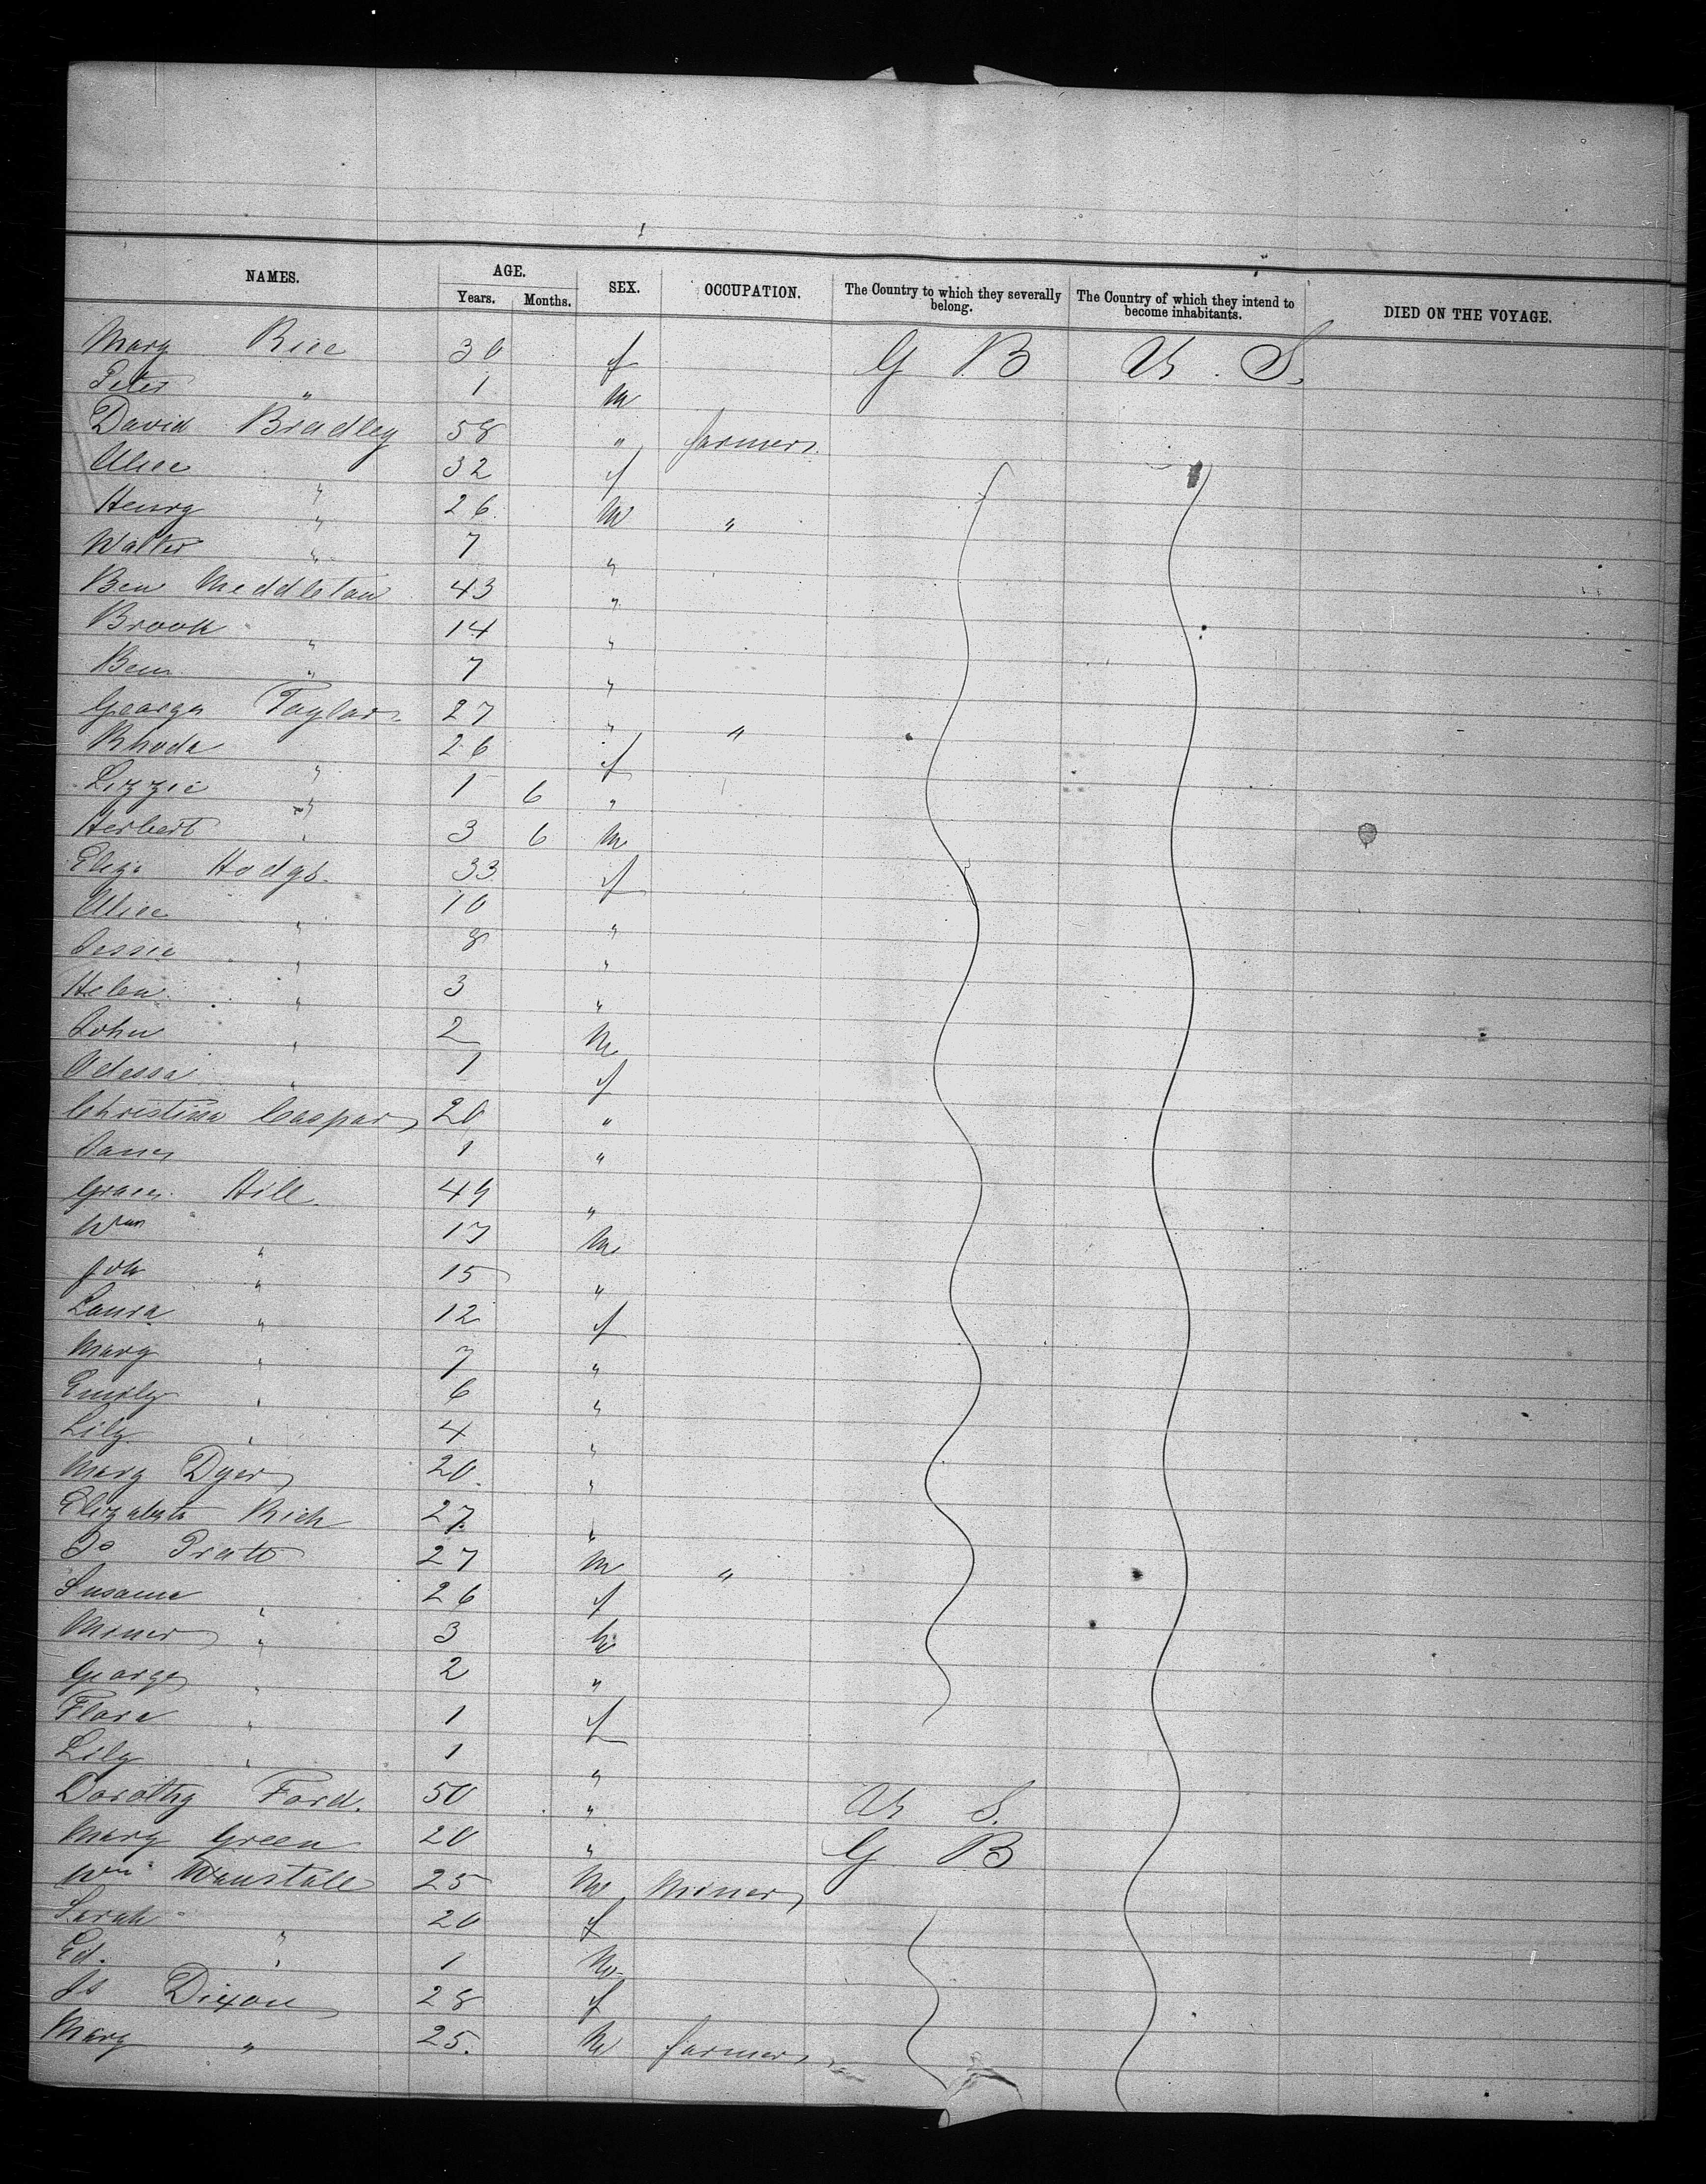 NAMES. AGE. SEX. OCCUPATION. The Country to which they severally belong. The Country of which they intend to become inhabitants. DIED ON THE VOYAGE.
Years. Months.
Mary Rice 30 f G B U. S.
Peter " 1 m
David Bradley 58 " farmer
Alice " 32 f
Henry " 26 m "
Walter " 7 "
Ben Meddleton 43 "
Brook " 14 "
Ben " 7 "
George Taylor 27 " "
Rhoda " 26 f
Lizzie " 1 6 "
Herbert " 3 6 m
Eliza Hodgs 33 f
Alice " 10 "
Jessie " 8 "
Helen " 3 "
John " 2 m
Odessa " 1 f
Christina Caspar 20 "
Janes 1 "
Graces Hill 49 "
Wm " 17 m
Joh " 15 "
Laura " 12 f
Mary " 7 "
Emily " 6 "
Lily " 4 "
Mary Dyer 20 "
Elizabeth Rich 27 "
Jo Pratt 27 m "
Susanna " 26 f
Miner " 3 m
George " 2 "
Flora " 1 f
Lily " 1 "
Dorothy Ford. 50 " U S.
Mary Green 20 " G B
Wm 25 m Miner
Sarah " 20 f
Ed. " 1 m
Js Dixon 28 f
Mary " 25. m farmer